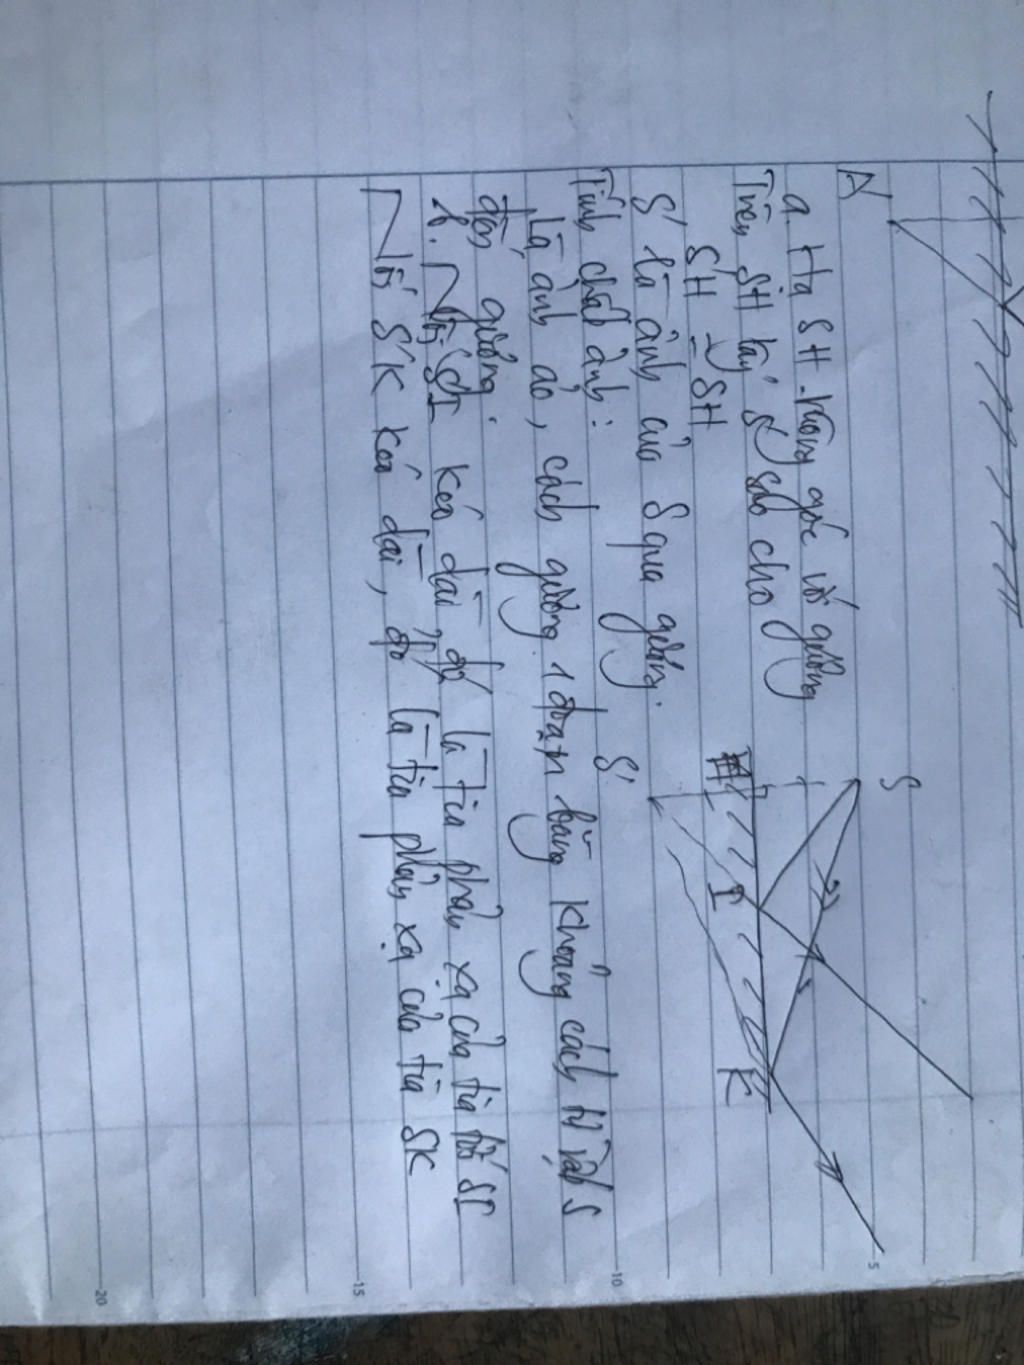 A
a. Hạ SH vuông góc với gương
Trên SH lấy S' sao cho
S'H = SH
S' là ảnh của S qua gương.
Tính chất ảnh:
Là ảnh ảo, cách gương 1 đoạn bằng khoảng cách từ vật S
đến gương.
b. Nối S'I kéo dài đó là tia phản xạ của tia tới SI
Nối S'K kéo dài, đó là tia phản xạ của tia SK
S
S'
H
I
K
5
10
15
20